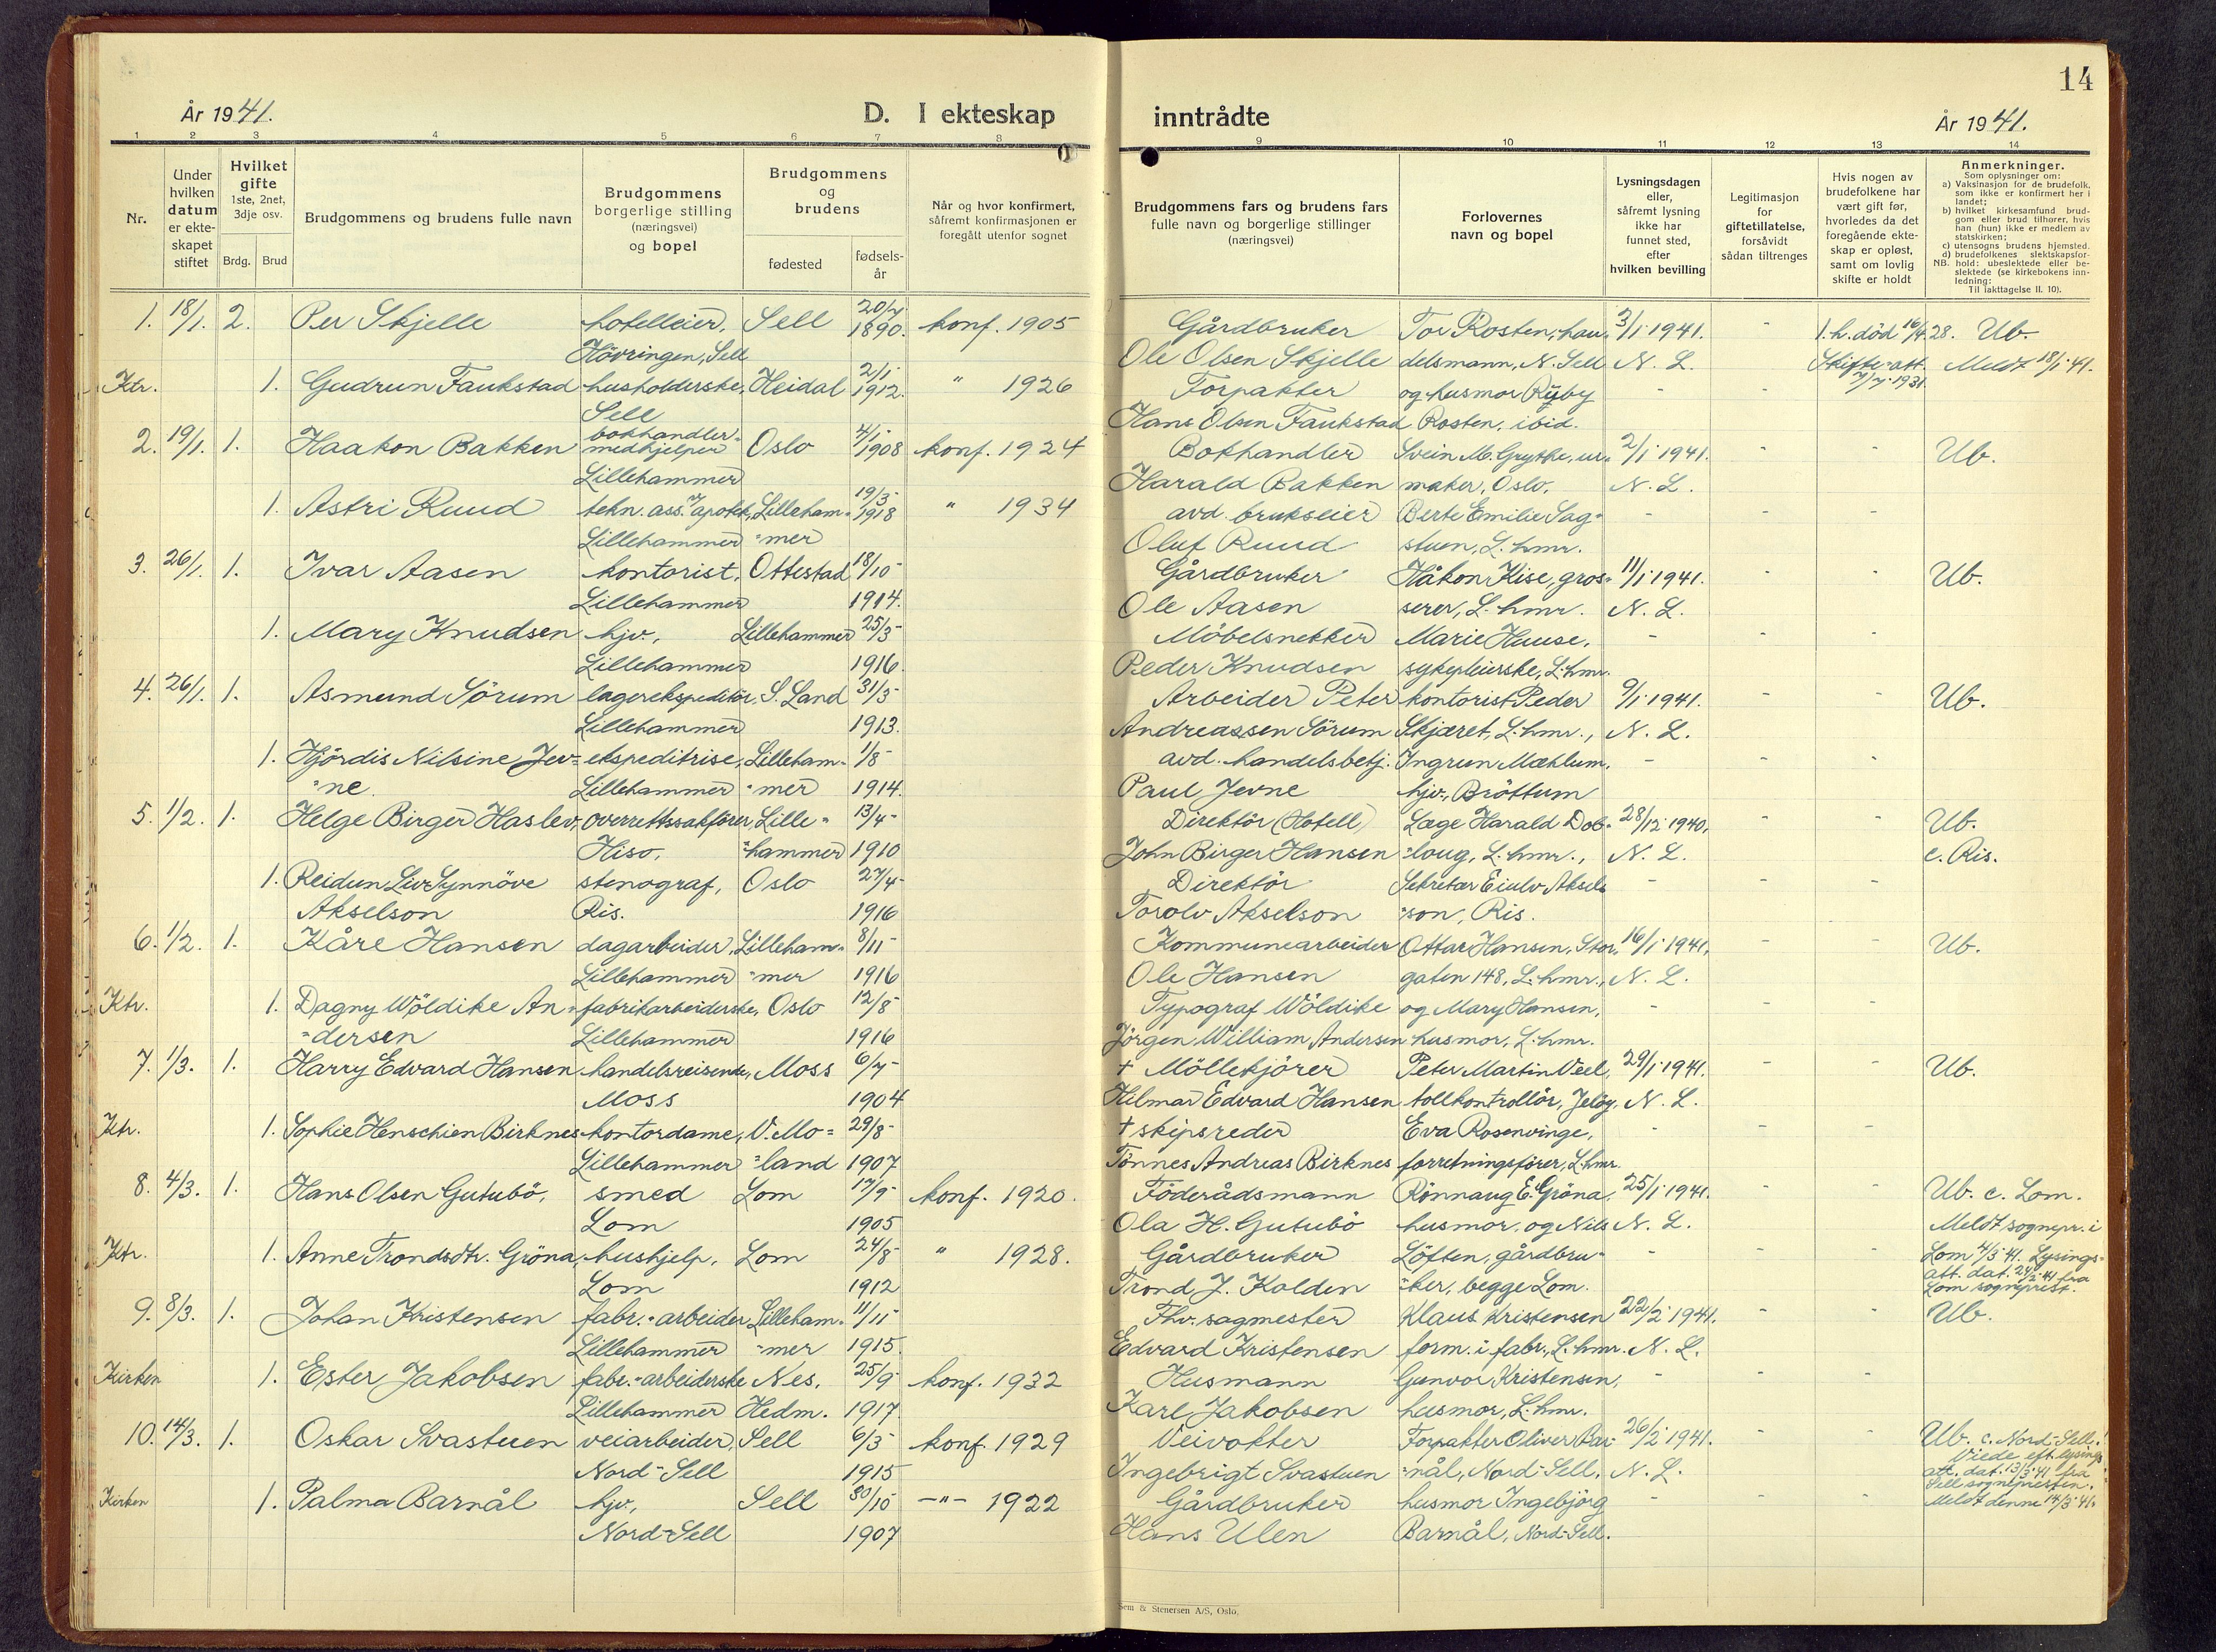 14
År 1941.
D. I ekteskap
inntrådte
År 1941.
1 2 3 4 5 6 7 8
9 10 11 12 13 14
Nr.
Under hvilken datum er ekteskapet stiftet
Hvilket gifte 1ste, 2net, 3dje osv.
Brdg. Brud
Brudgommens og brudens fulle navn
Brudgommens borgerlige stilling (næringsvei) og bopel
Brudgommens og brudens
fødested
fødselsår
Når og hvor konfirmert, såfremt konfirmasjonen er foregått utenfor sognet
Brudgommens fars og brudens fars fulle navn og borgerlige stillinger (næringsvei)
Forlovernes navn og bopel
Lysningsdagen eller, såfremt lysning ikke har funnet sted, efter hvilken bevilling
Legitimasjon for giftetillatelse, forsåvidt sådan tiltrenges
Hvis nogen av brudefolkene har vært gift før, hvorledes da det foregående ekteskap er opløst, samt om lovlig skifte er holdt
Anmerkninger.
Som oplysninger om:
a) Vaksinasjon for de brudefolk, som ikke er konfirmert her i landet;
b) hvilket kirkesamfund brudgom eller brud tilhører, hvis han (hun) ikke er medlem av statskirken;
c) utensogns brudens hjemsted.
d) brudefolkenes slektskapsforhold: ubeslektede eller beslektede (se kirkebokens innledning:
NB. Til iakttagelse II. 10).
1. 18/1. 2. Per Skjelle hotelleier, Sell 20/7 konf. 1905
Hövringen, Sell 1890.
Ktr. 1. Gudrun Faukstad husholderske, Heidal 2/1- " 1926
Sell 1912.
2. 19/1. 1. Haakon Bakken bokhandler- Oslo 4/1- konf. 1924
medhjelper 1908
Lillehammer
1. Astri Ruud tekn. ass. v/ apotek, Lilleham- 19/3- " 1934
Lillehammer -mer 1918
3. 26/1. 1. Ivar Aasen kontorist, Ottestad 18/10-
Lillehammer 1914.
1. Mary Knudsen hjv, Lillehammer 25/3-
Lillehammer 1916.
4. 26/1. 1. Asmund Sörum lagerekspeditör, S. Land 31/3-
Lillehammer 1913.
1. Hjördis Nilsine Jev= ekspeditrise, Lilleham- 1/8-
"ne. Lillehammer -mer 1914.
5. 1/2. 1. Helge Birger Haslev, overrettssakförer, Lille= 13/4-
Hiso, =hammer 1910
1. Reidun Liv Synnöve stenograf, Oslo 27/4-
Akselson Ris. 1916
6. 1/2. 1. Kåre Hansen dagarbeider, Lilleham= 8/11-
Lillehammer =mer 1916
Ktr. 1. Dagny Wöldike An= fabrikarbeiderske, Oslo 12/8-
=dersen Lillehammer 1916
7. 1/3. 1. Harry Edvard Hansen handelsreisende, Moss 6/7-
Moss 1904
Ktr. 1. Sophie Henschien Birknes kontordame, V. Mo= 29/8-
Lillehammer =land 1907
8. 4/3. 1. Hans Olsen Gutubö, smed Lom 17/9- konf. 1920.
Lom 1905
Ktr. 1. Anne Trondsdtr. Gröna, hushjelp, Lom 24/8- " 1928.
Lom 1912
9. 8/3. 1. Johan Kristensen fabr.-arbeider Lilleham- 11/11-
Lillehammer =mer 1915.
Kirken 1. Ester Jakobsen fabr.-arbeiderske Nes, 25/9- konf. 1932
Lillehammer Hedm. 1917.
10. 14/3. 1. Oskar Svastuen veiarbeider, Sell 6/3- konf. 1929
Nord-Sell 1915
Kirken 1. Palma Barnål hjv, Sell 30/10 —"— 1922
Nord-Sell 1907
Gårdbruker Tor Rosten, han- 3/1 1941. - 1. h. död 16/4 28. Ub.
Ole Olsen Skjelle delsmann, N. Sell N. L. Skifte-att. Meldt 18/1-41.
Forpakter og husmor Ryby - - 7/7-1931.
Hans Olsen Faukstad Rosten, ibid.
Bokhandler Svein M. Grythe, ur- 2/1 1941. - - Ub.
Harald Bakken maker, Oslo, N. L.
avd. brukseier Berte Emilie Sag- - - -
Oluf Ruud stuen, L.hmr.
Gårdbruker Håkon Kise, gros- 11/1 1941. - - Ub.
Ole Aasen serer, L.hmr. N. L.
Möbelsnekker Marie Huuse, - - -
Peder Knudsen sykepleierske, L.hmr.
Arbeider Peter kontorist Peder 9/1 1941. - - Ub.
Andreassen Sörum Skjæret, L.hmr., N. L.
avd. handelsbetj. Ingrun Mæhlum, - - -
Paul Jevne hjv., Bröttum
Direktör (Hotell) Læge Harald Dob- 28/12 1940, - - Ub.
John Birger Hansen =loug, L.hmr., N. L. c. Ris.
Direktör Sekretær Eiulv Aksel= - - -
Torolv Akselson =son, Ris.
Kommunearbeider Ottar Hansen, Stor- 16/1 1941, - - Ub.
Ole Hansen gaten 148, L.hmr., N. L.
Typograf Wöldike og Mary Hansen, - - -
Jörgen William Andersen husmor, L.hmr.
† Möllekjörer Peter Martin Veel, 29/1 1941. - - Ub.
Hilmar Edvard Hansen tollkontrollör, Jelöy, N. L.
† skipsreder Eva Rosenvinge, - - -
Tönnes Andreas Birknes forretningsförer, L.hmr.
Föderådsmann Rönnaug E. Gröna, 25/1 1941. - - Ub. c. Lom.
Ola H. Gutubö husmor, og Nils N. L. Meldt sognepr. i
Gårdbruker Löften, gårdbru- - - - Lom 4/3-41. Lysings-
Trond J. Kolden =ker, begge Lom. att. dat. 24/2-41 fra
Lom sogneprest.
Fhv. sagmester Klaus Kristensen 22/2 1941. - - Ub.
Edvard Kristensen form. i fabr., L.hmr. N. L.
Husmann Gunvor Kristensen, - - -
Karl Jakobsen husmor, L.hmr.
Veivokter Forpakter Oliver Bar- 26/2 1941. - - Ub. c. Nord-Sell.
Ingebrigt Svastuen =nål, Nord-Sell, N. L. Viede eft. lysings-
att. dat. 13/3-41 fra
Gårdbruker husmor Ingebjörg - - - Sell sognepresten.
Hans Ulen Barnål, Nord-Sell. Meldt denne 14/3-41.
Sem & Stenersen A/S, Oslo.